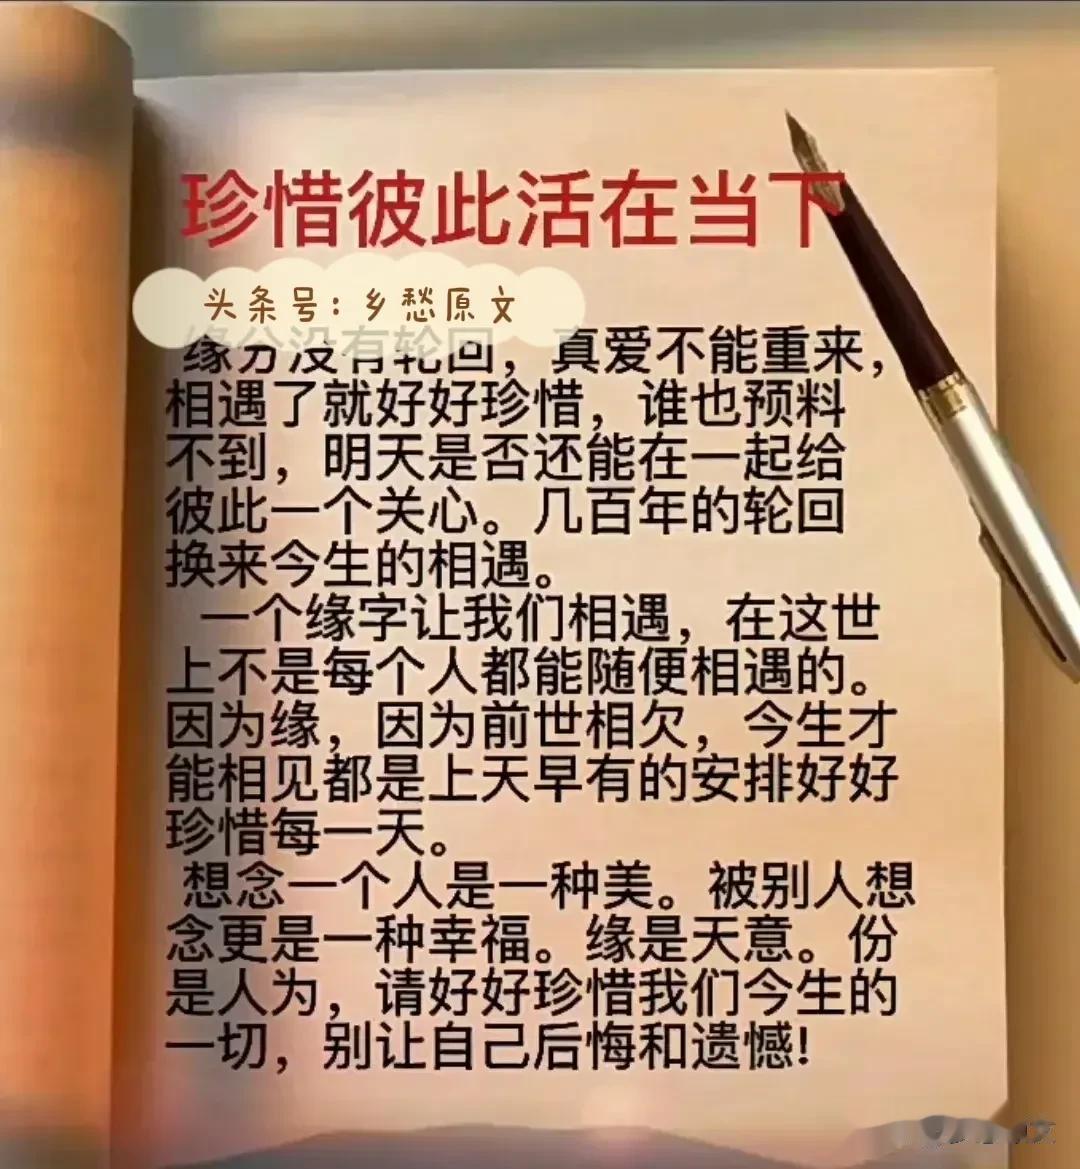 珍惜彼此活在当下
头条号:乡愁原文
缘分没有轮回，真爱不能重来，
相遇了就好好珍惜，谁也预料
不到，明天是否还能在一起给
彼此一个关心。几百年的轮回
换来今生的相遇。
一个缘字让我们相遇，在这世
上不是每个人都能随便相遇的。
因为缘，因为前世相欠，今生才
能相见都是上天早有的安排好好
珍惜每一天。
想念一个人是一种美。被别人想
念更是一种幸福。缘是天意。份
是人为，请好好珍惜我们今生的
一切，别让自己后悔和遗憾!